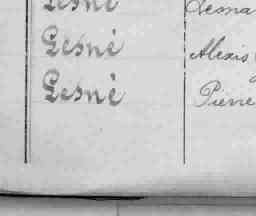 Lesné
Lesné Alexis
Lesné Pierre